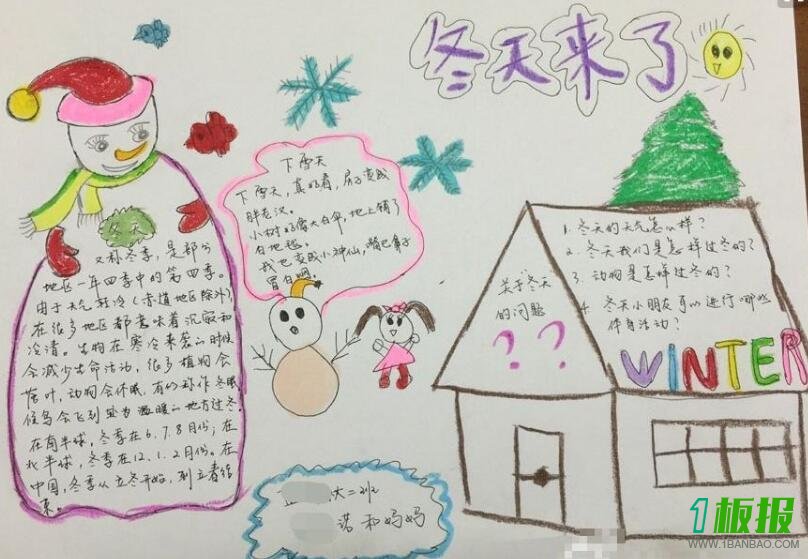 冬天来了
冬天
又称冬季，是部分
地区一年四季中的第四季。
由于天气较冷（赤道地区除外），
在很多地区都意味着沉寂和
冷清。生物在寒冷来袭的时候
会减少生命活动，很多植物会
落叶，动物会休眠，有的称作冬眠。
候鸟会飞到较为温暖的地方过冬。
在南半球，冬季在6.7.8月份；在
北半球，冬季在12.1.2月份。在
中国，冬季从立冬开始，到立春结
束。
下雪天
下雪天，真好看，房子变成
胖老汉。
小树好像大白伞，地上铺了
白地毯。
我也变成小神仙，嘴巴鼻子
冒白烟。
关于冬天
的问题
??
1.冬天的天气怎么样？
2.冬天我们是怎样过冬的？
3.动物是怎样过冬的？
4.冬天小朋友可以进行哪些
体育活动？
WINTER
大二班
诺和妈妈
1板报
WWW.1BANBAO.COM